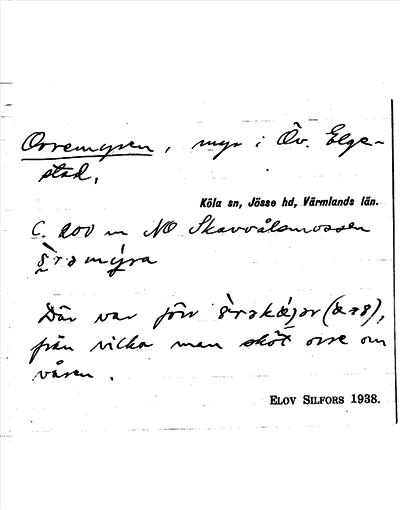 Orremyren, myr i Öv. Elge-
stad,
Köla sn, Jösse hd, Värmlands län.
C. 200 m NO Skavvålsmossen
Där var förr
från vilka man sköt orre om
våren.
ELOV SILFORS 1938.